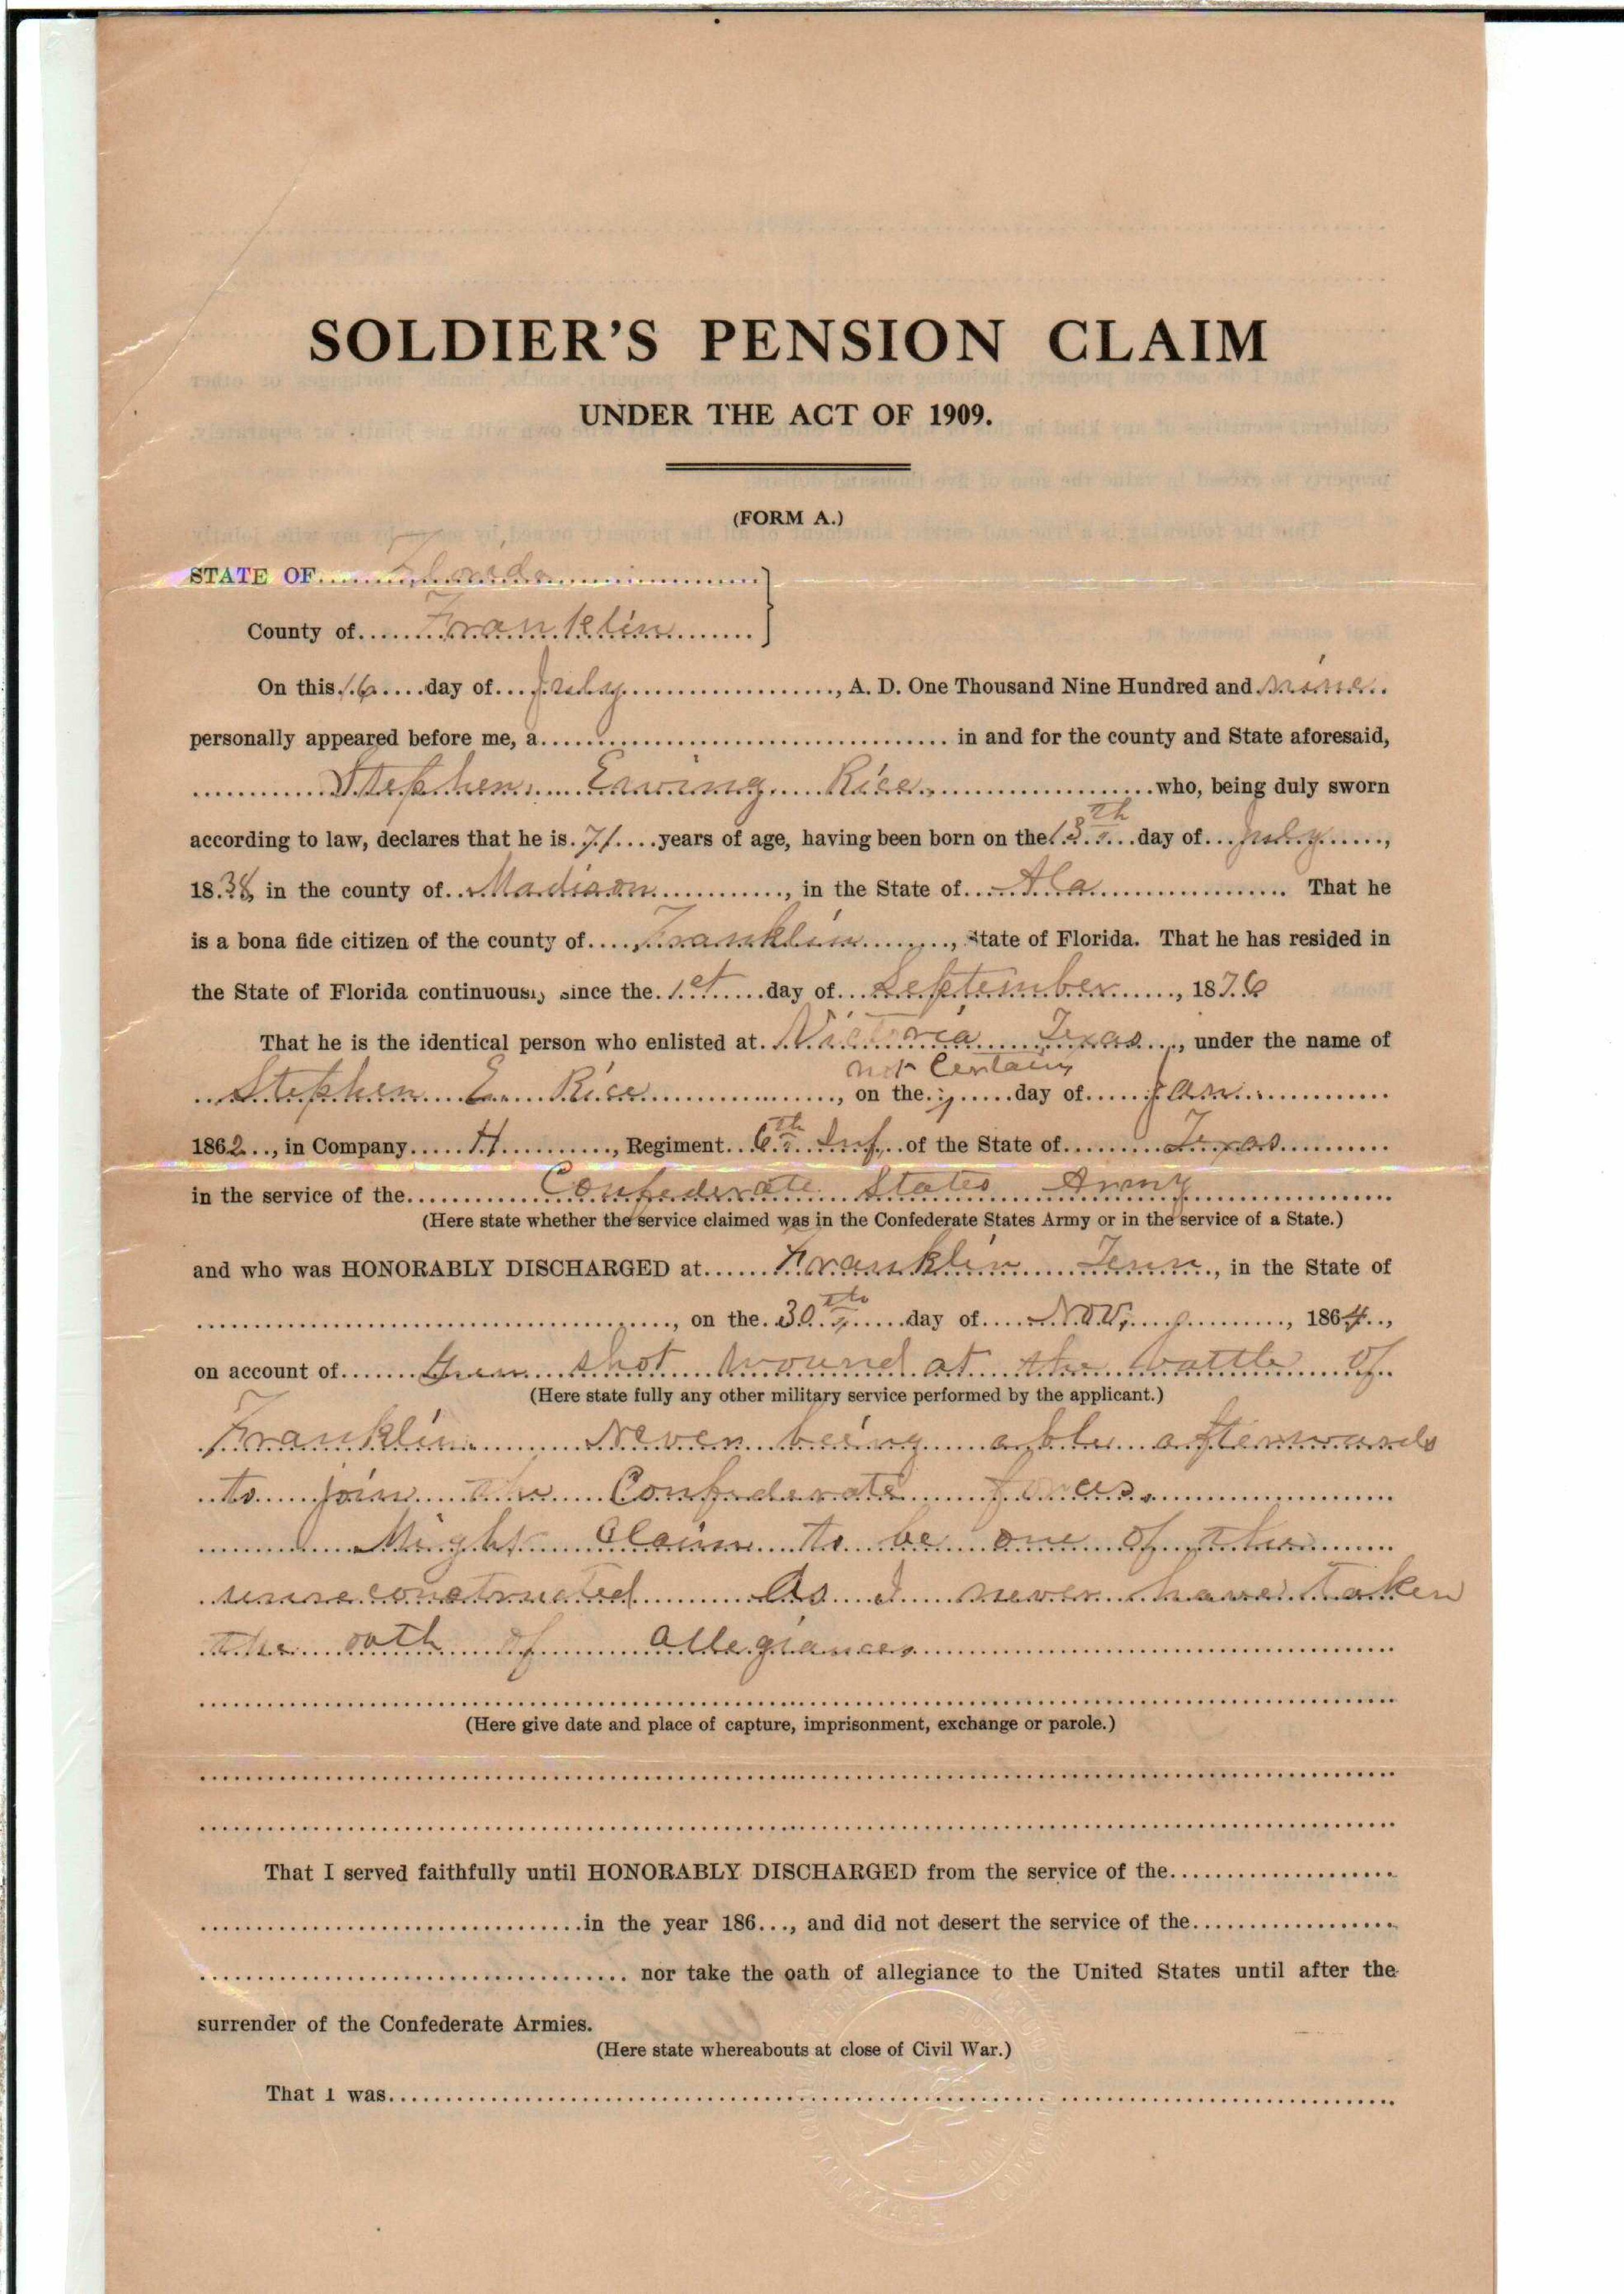 SOLDIER'S PENSION CLAIM
UNDER THE ACT OF 1909.
(FORM A.)
STATE OF Florida
County of Franklin
On this 16 day of July, A. D. One Thousand Nine Hundred and nine
personally appeared before me, a in and for the county and State aforesaid,
Stephen Ewing Rice who, being duly sworn
according to law, declares that he is 71 years of age, having been born on the 13th day of July,
1838, in the county of Madison, in the State of Ala. That he
is a bona fide citizen of the county of Franklin, State of Florida. That he has resided in
the State of Florida continuously since the 1st day of September, 1876
That he is the identical person who enlisted at Victoria Texas, under the name of
not Certain
Stephen E. Rice, on the day of Jan.
1862, in Company H, Regiment 6th Inf. of the State of Texas
in the service of the Confederate States Army
(Here state whether the service claimed was in the Confederate States Army or in the service of a State.)
and who was HONORABLY DISCHARGED at Franklin Tenn, in the State of
, on the 30th day of Nov, 1864,
on account of Gun shot wound at the battle of
(Here state fully any other military service performed by the applicant.)
Franklin Never being able afterwards
to join the Confederate forces.
Might claim to be one of the
unreconstructed As I never have taken
the oath of Allegiance
(Here give date and place of capture, imprisonment, exchange or parole.)
That I served faithfully until HONORABLY DISCHARGED from the service of the
in the year 186..., and did not desert the service of the
nor take the oath of allegiance to the United States until after the
surrender of the Confederate Armies.
(Here state whereabouts at close of Civil War.)
That I was